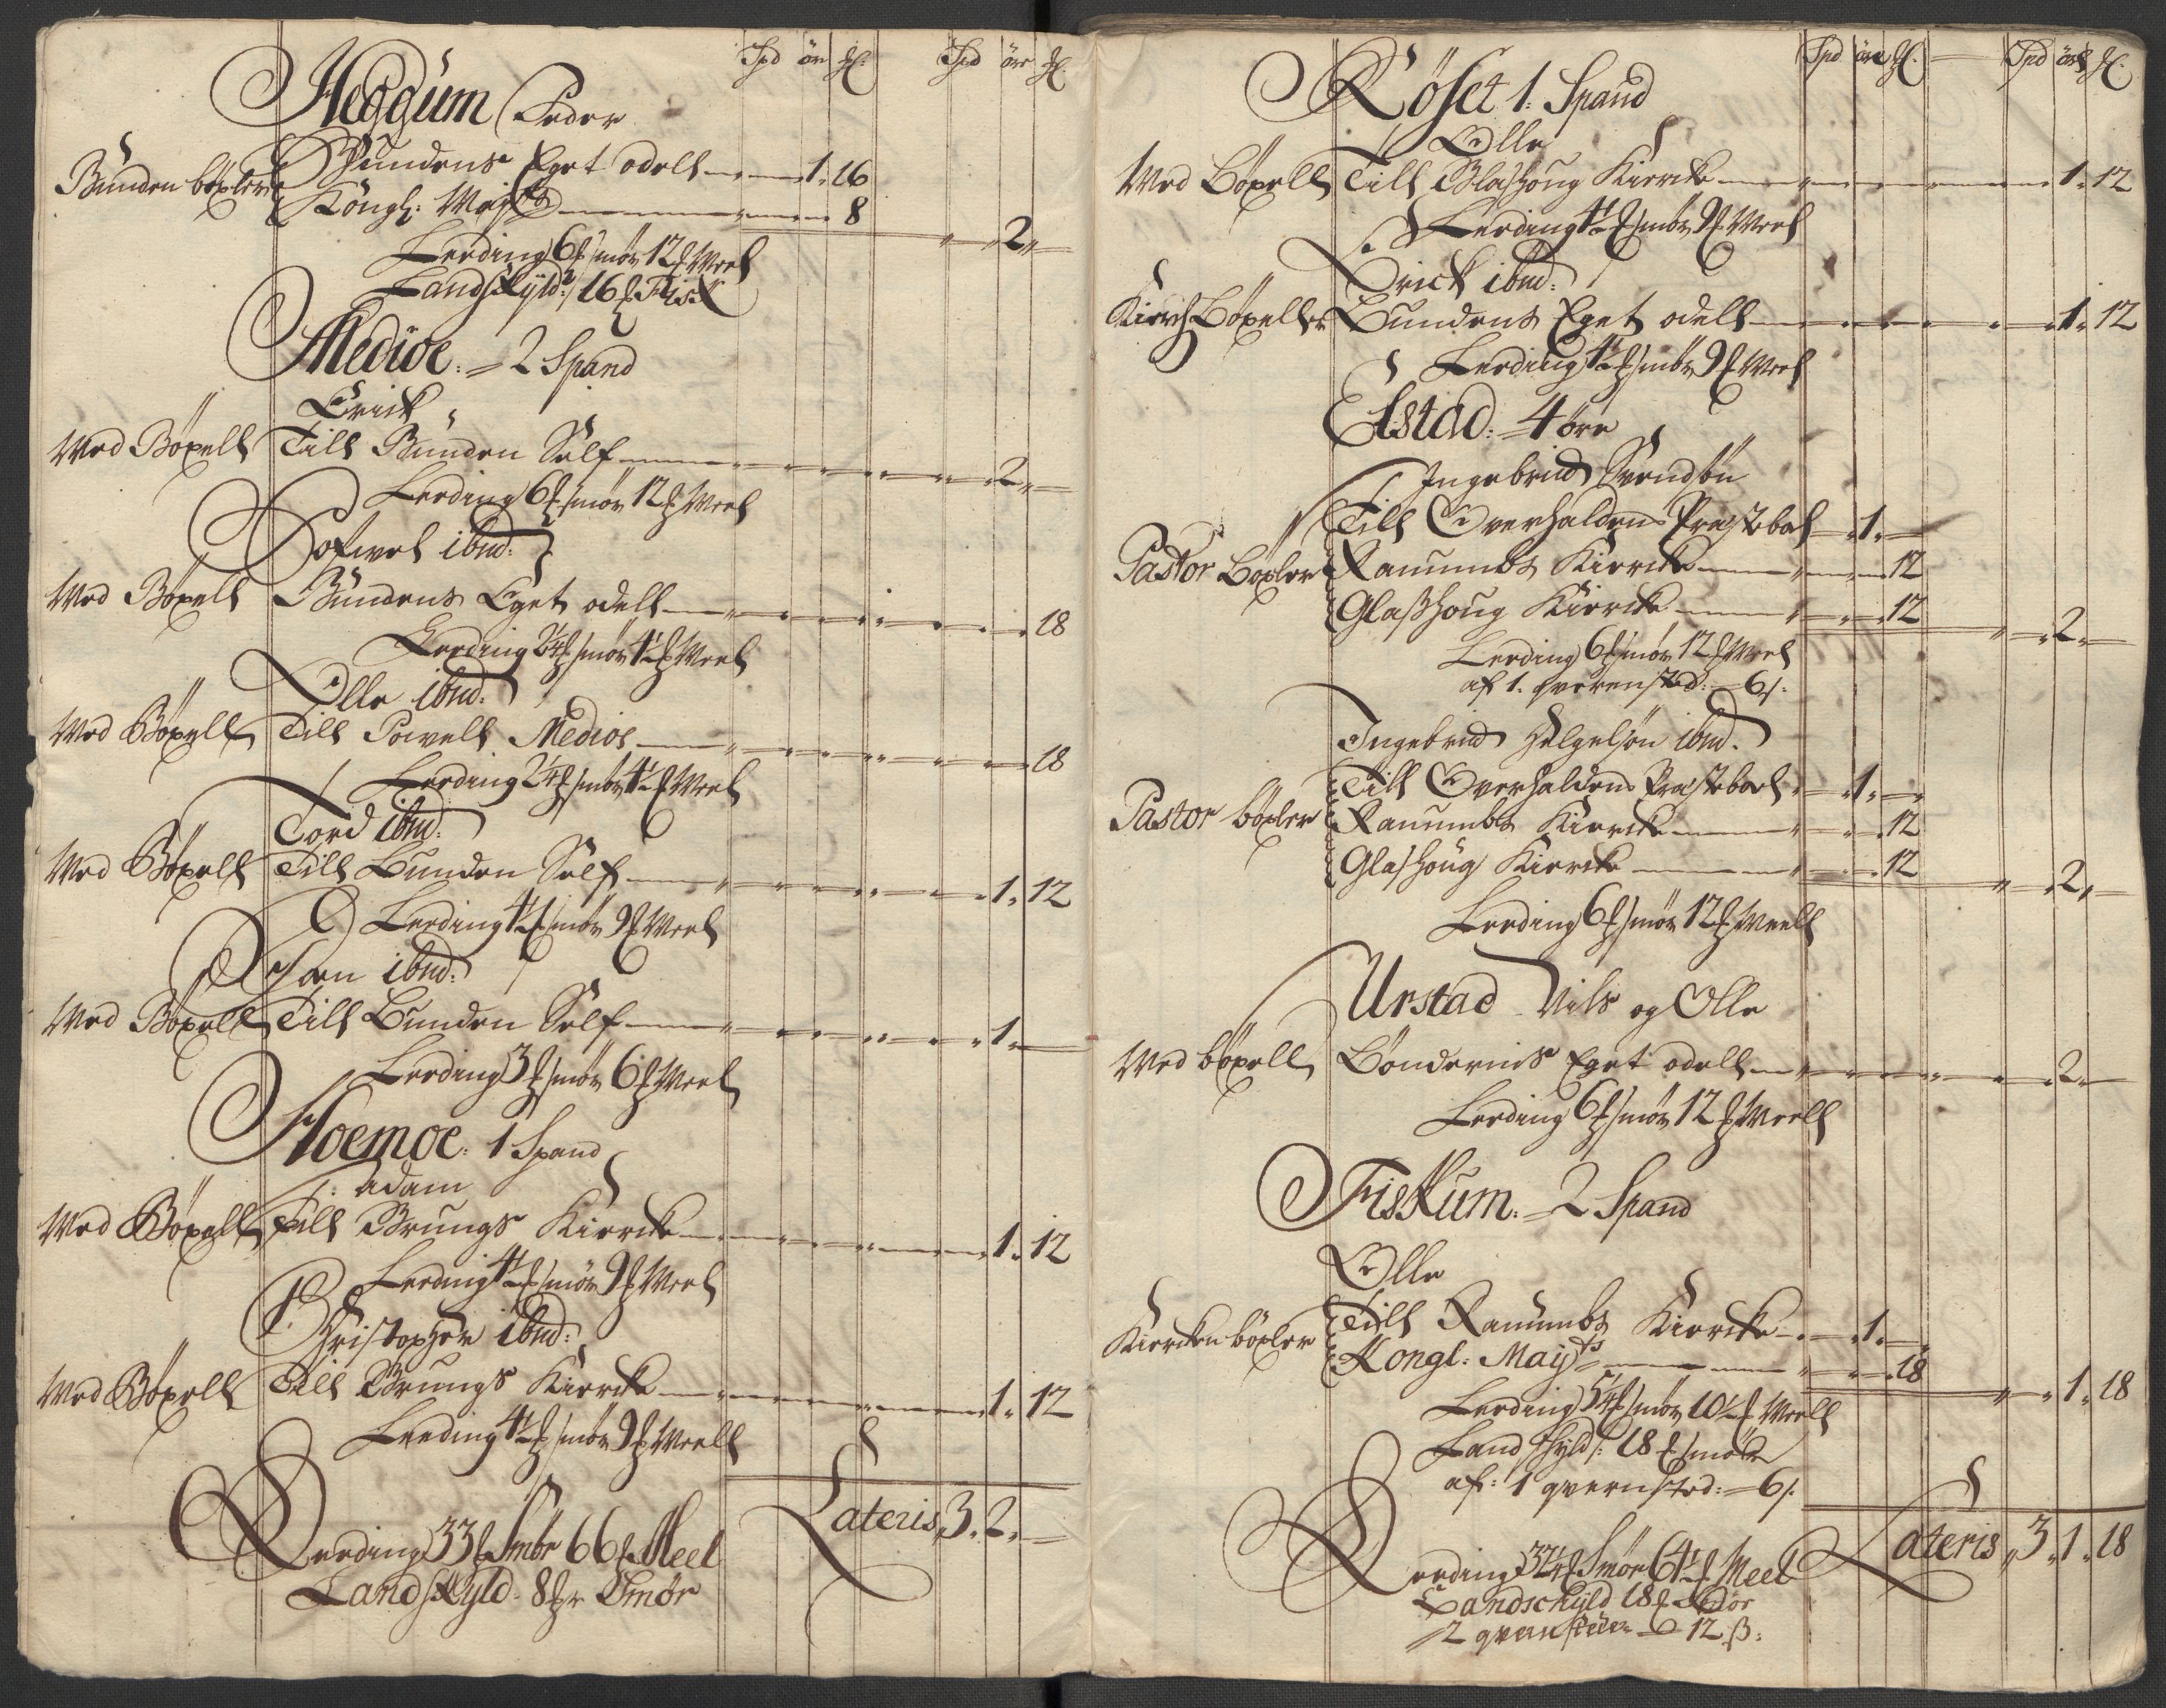 Spd öre ℔: Spd öre ℔.
Heggum Peder
Bunden böxler Bundens Eget odell 1. 16
Köngl: Maÿts 8
2
Leeding 6 ℔ smör 12 ℔ Meel
Landskÿld: 16 ℔ Fisk
Medioe: 2 Spand
Erick
Med Böxell Till Bunden Self 2
Leeding 6 ℔ smör 12 ℔ Meel
Pofwel ibnd:
Med Böxell Bundens Eget odell 18
Leeding 2¼ ℔ smör 4½ ℔ Meel
Olle ibnd:
Med Böxell Till Powell Medioe 18
Leeding 2¼ ℔ smör 4½ ℔ Meel
Tord ibnd:
Med Böxell Till Bunden Self 1. 12
Leeding 4½ ℔ smör 9 ℔ Meel
ibnd:
Med Böxell Till Bunden Self 1.
Leeding 3 ℔ smör 6 ℔ Meel
Floemoe: 1 Spand
Adam
Med Böxell Till Brungs Kiercke 1. 12
Leeding 4½ ℔ smör 9 ℔ Meel
Christopher ibnd:
Med Böxell Till Brungs Kiercke 1. 12
Leeding 4½ ℔ smör 9 ℔ Meell
Lateris 3. 2.
Leeding 33 ℔ Smör 66 ℔ Meel
Landskÿld 8 ℔r Smör
Spd öre ℔. Spd öre ℔.
Röset 1: Spand
Olle
Med Böxell Till Glashoug Kiercke 1. 12
Leeding 4½ ℔ smör 9 ℔ Meel
Erick ibnd:
Kirch Böxeller Bundens Eget odell 1. 12
Leeding 4½ ℔ smör 9 ℔ Meel
Elstad: 4 öre
Ingebrict Svendsön
Till Overhaldens Præstebol 1.
Pastor Böxler Ranumbs Kiercke 12
Glasshoug Kiercke 12
2.
Leeding 6 ℔ smör 12 ℔ Meel
af 1. qverensted: 6 s:
Ingebrict Helgesön ibnd.
Till Overhaldens Præsteboel 1.
Pastor böxler Ranumbs Kiercke 12
Glashoug Kiercke 12
2.
Leeding 6 ℔ smör 12 ℔ Meell
Urstad Nils og Olle
Med böxell Böndernis Eget odell 2.
Leeding 6 ℔ smör 12 ℔ Meell
Fiskum: 2 Spand
Olle
Till Ranumbs Kiercke 1.
Kiercken böxler Kongl: Maÿts 18
1. 18
Leeding 5¼ ℔ smör 10½ ℔ Meell
Landskÿld: 18 ℔ smör
af: 1 qvernsted: 6 s.
Lateris 3. 1. 18
Leeding 32¼ ℔ Smör 64½ ℔ Meel
Landschÿld 18 ℔ Smör
2 qvernsteder 12 ß: